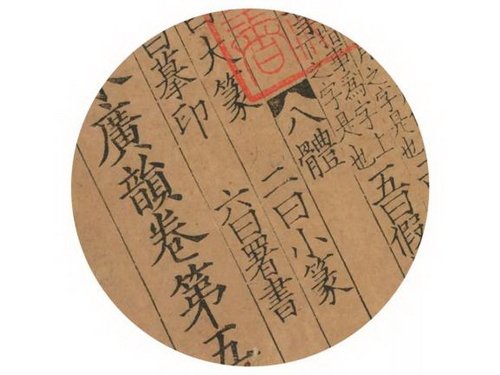 之字是也
五曰假
指事為字上
下之字是也
八體
曰大篆 二曰小篆
曰摹印 六曰署書
廣韻卷第五